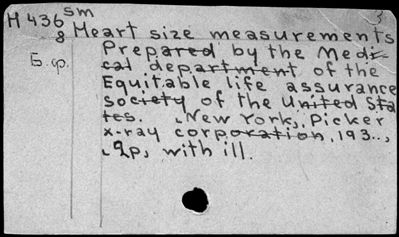 sm 3
H 436
8 Heart size measurements
Prepared by the Medi-
Б.ф. cal department of the
Equitable life assurance
society of the United Sta
tes. New York, Picker
x-ray corporation, 193..,
2p, with ill.